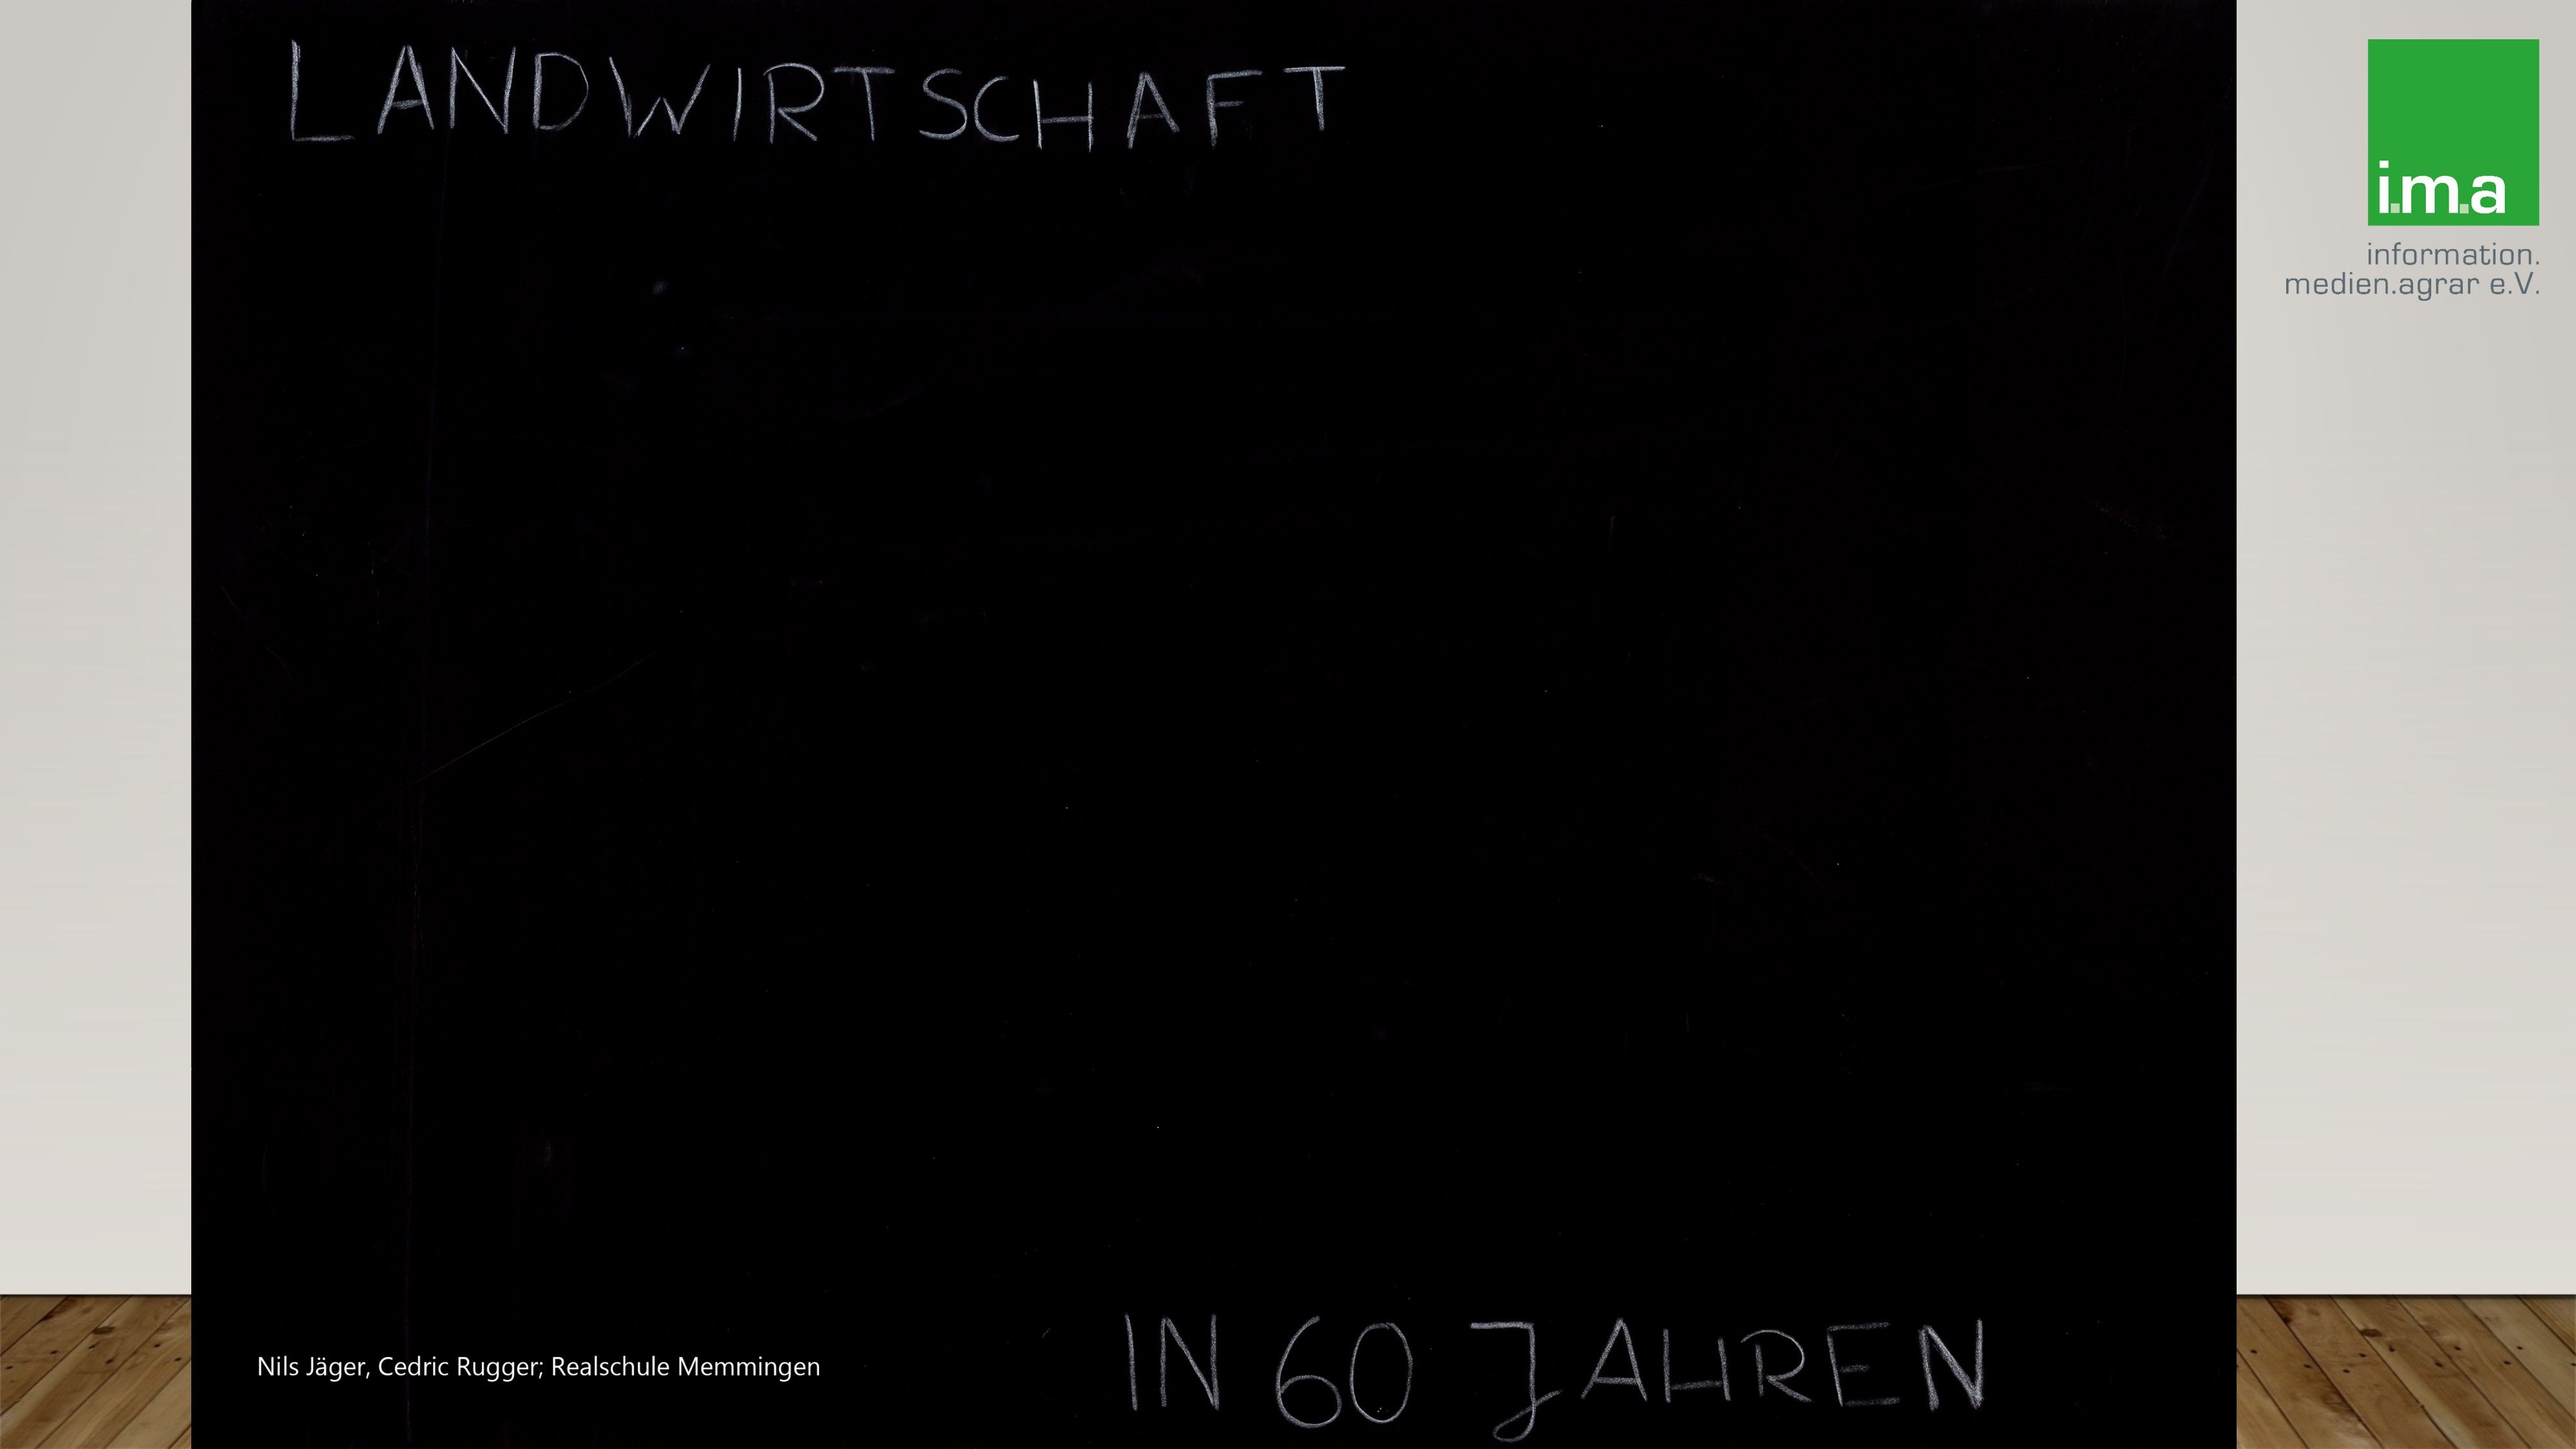 LANDWIRTSCHAFT
i.m.a
information.
medien.agrar e.V.
IN 60 JAHREN
Nils Jäger, Cedric Rugger; Realschule Memmingen